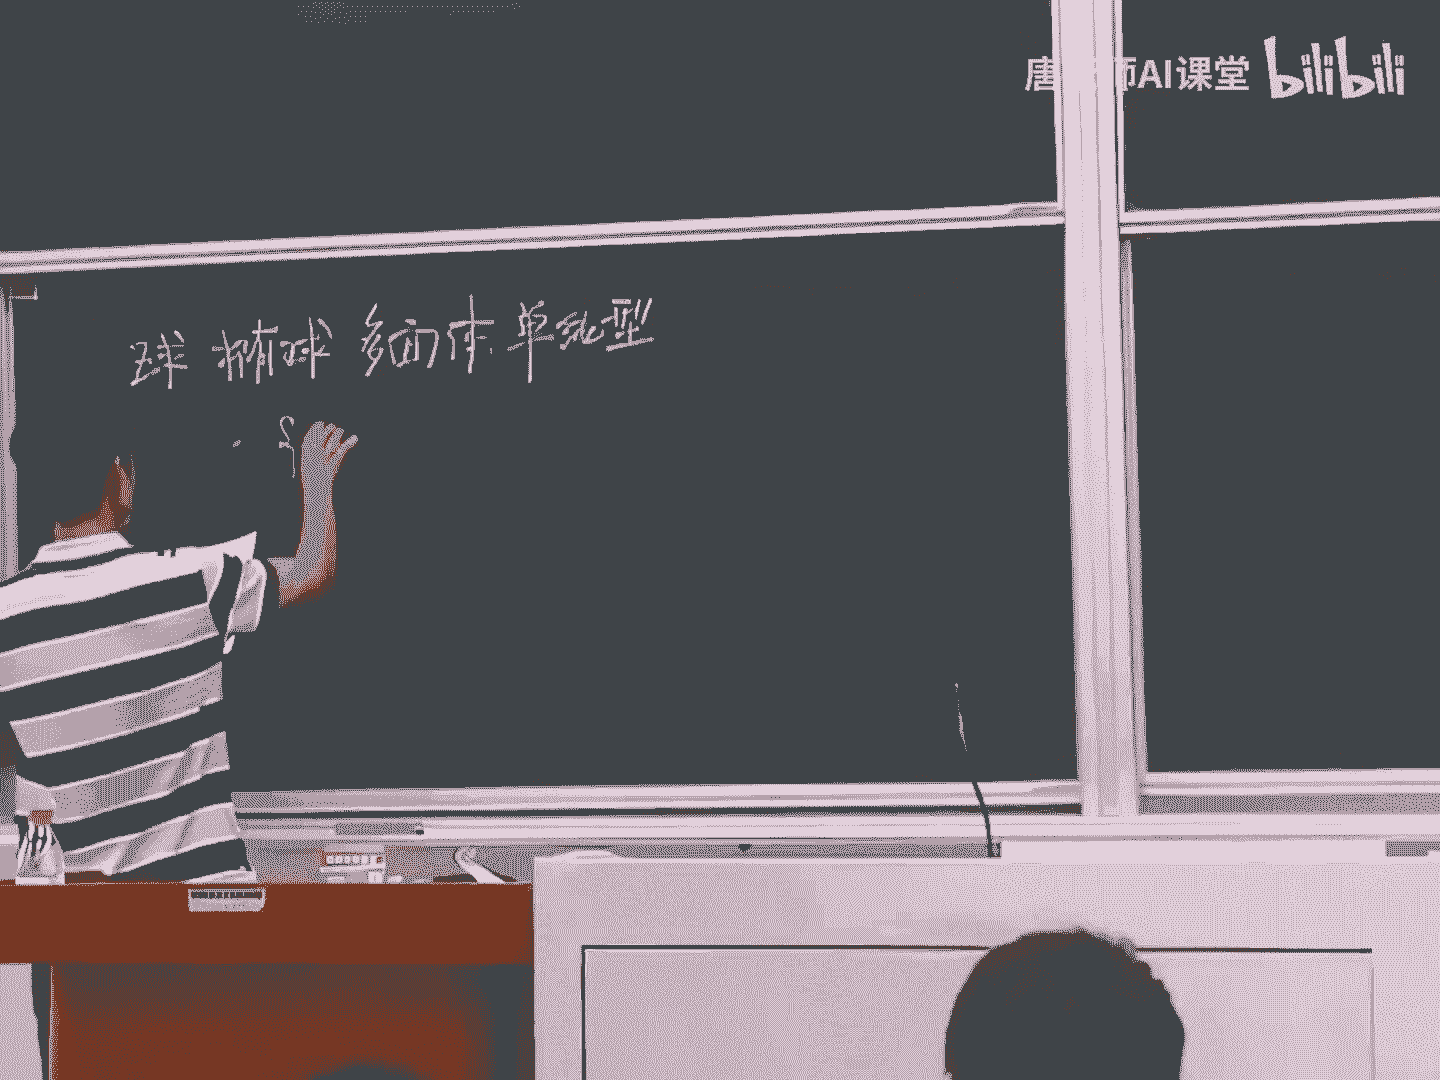 唐 师AI课堂 bilibili
球 椭球 多面体 单纯型